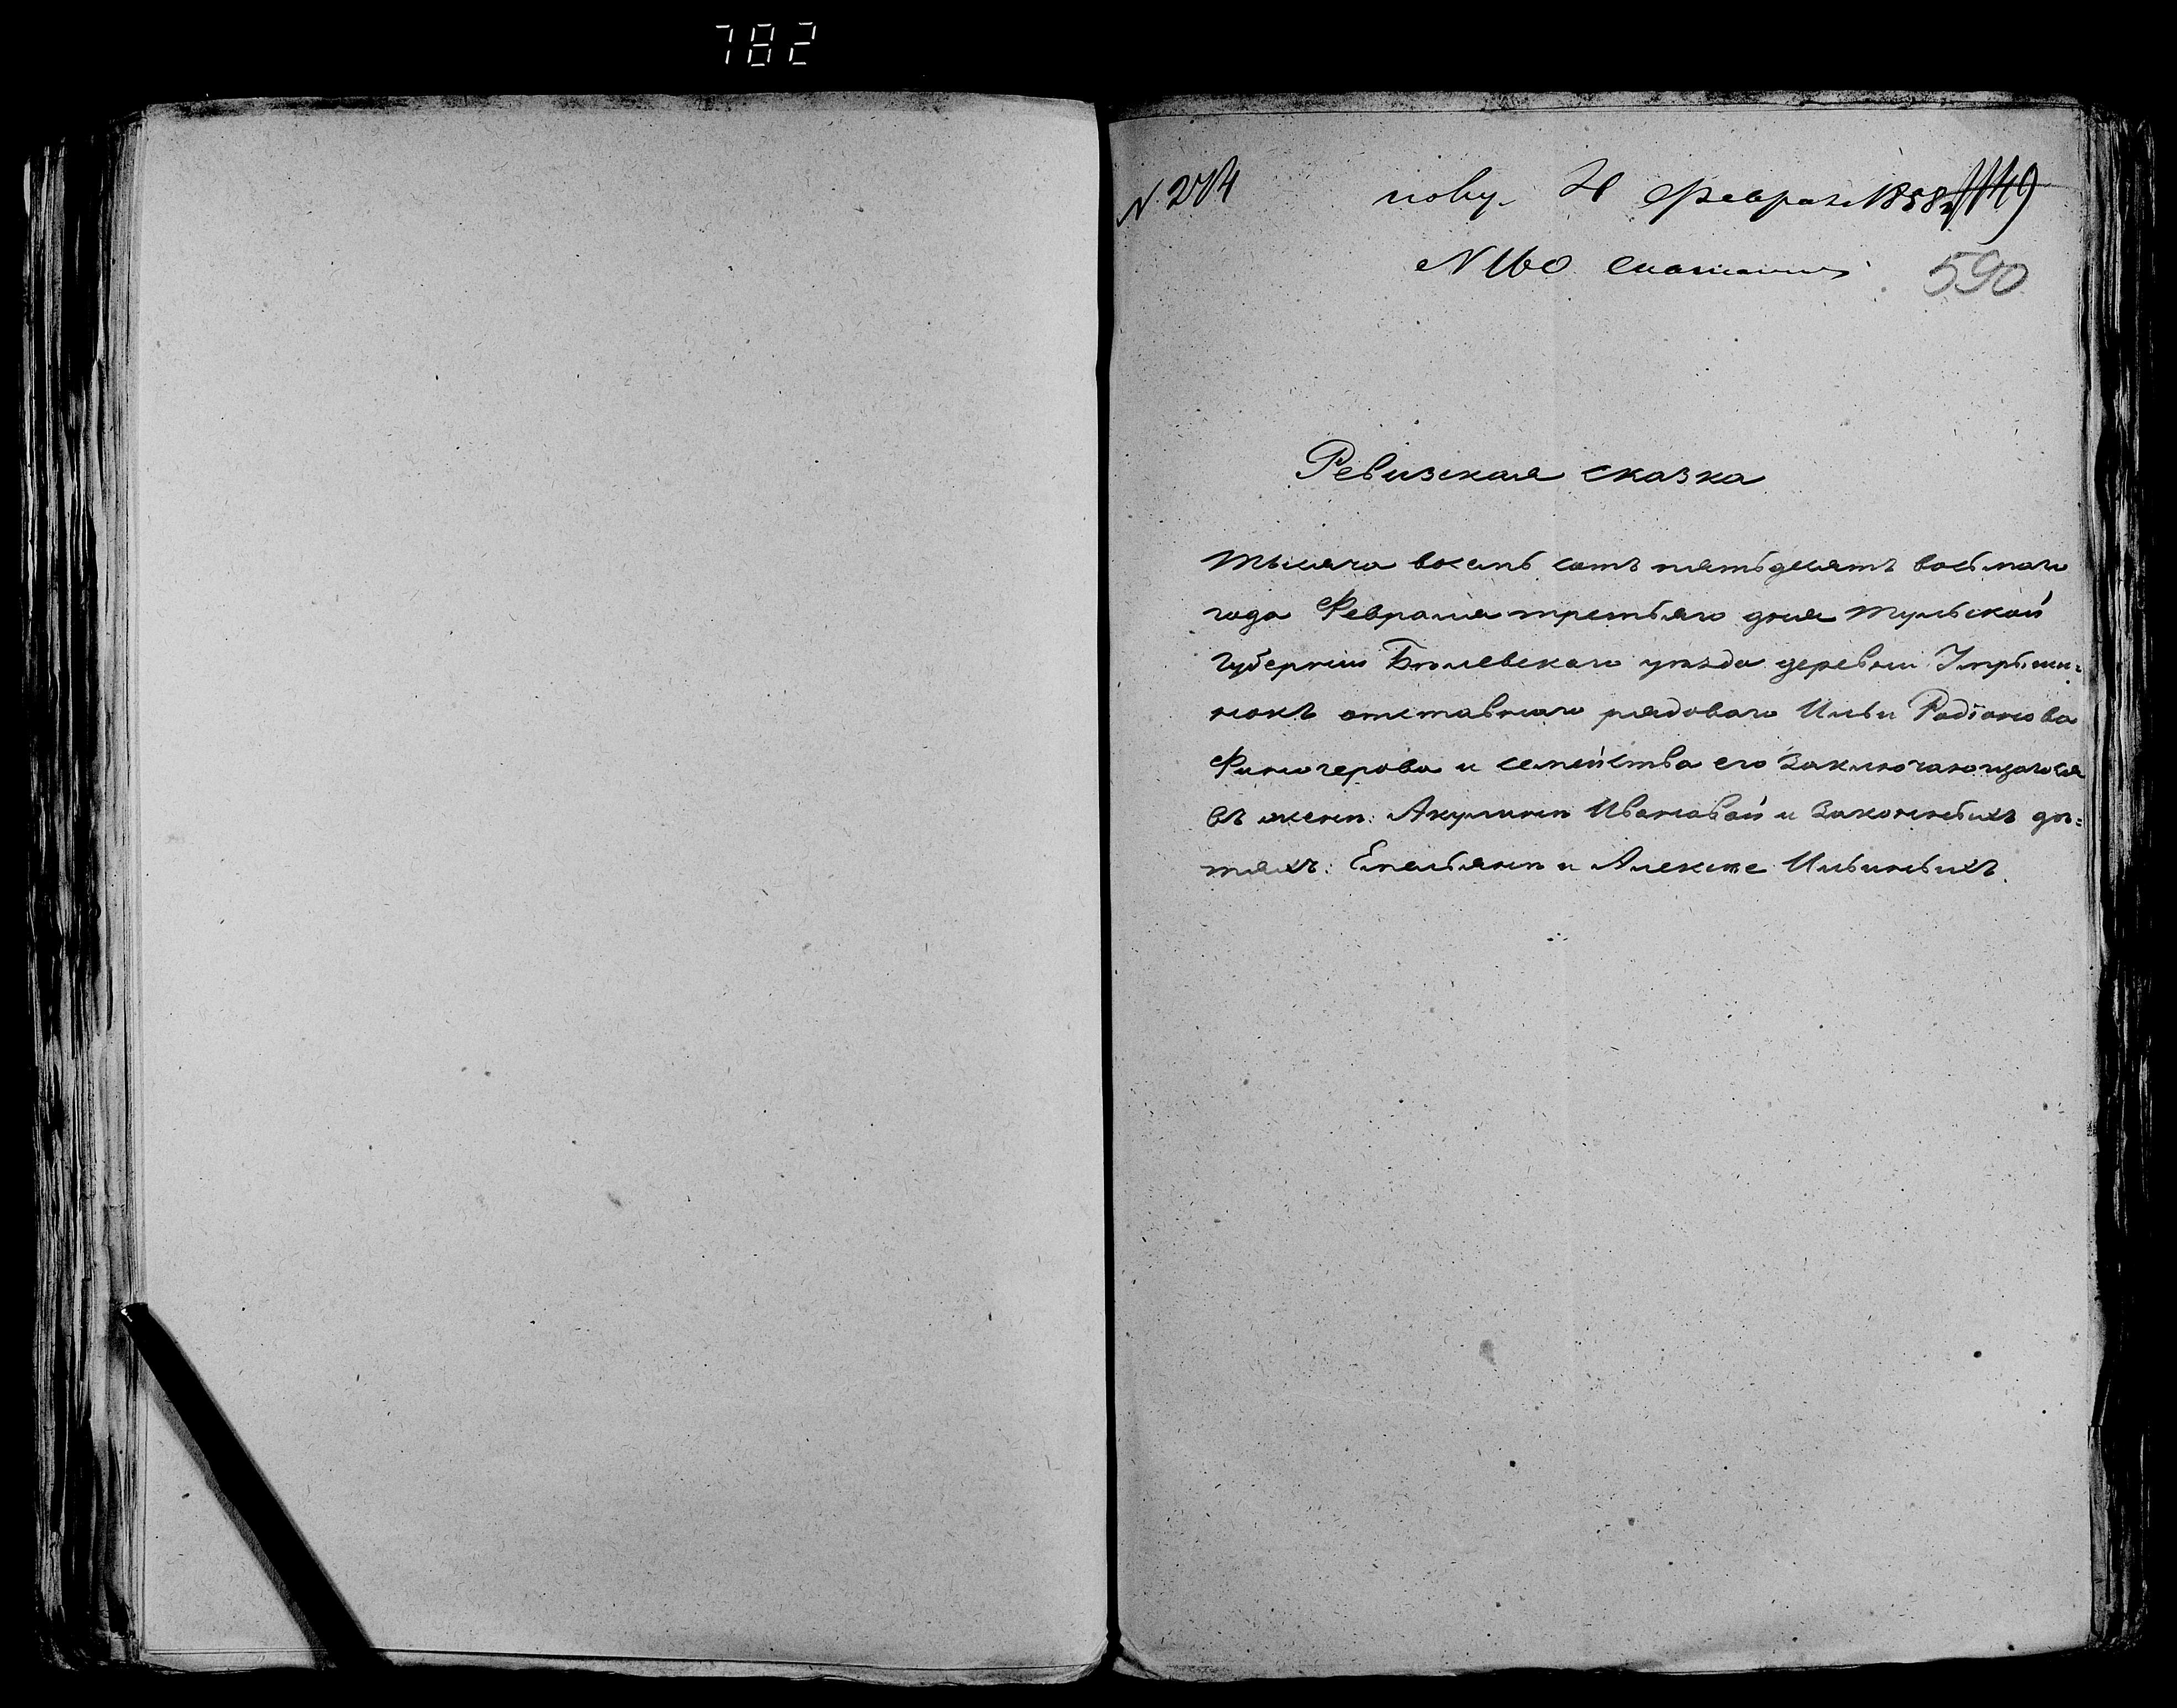 782
N 274
Февраля 1858 г
N 160
590
Ревизская сказка
Тысяча восемь сотъ пятьдесятъ восьмаго
года Февраля третьяго дня Тульской
Губерніи Бѣлевскаго уѣзда деревни
отставнаго рядоваго Ильи Радіонова
Финогерова и семейства его заключающагося
въ женѣ: Акулинѣ Ивановой и законныхъ дѣ=
тяхъ: Емельянѣ и Алексѣе Ильиныхъ.